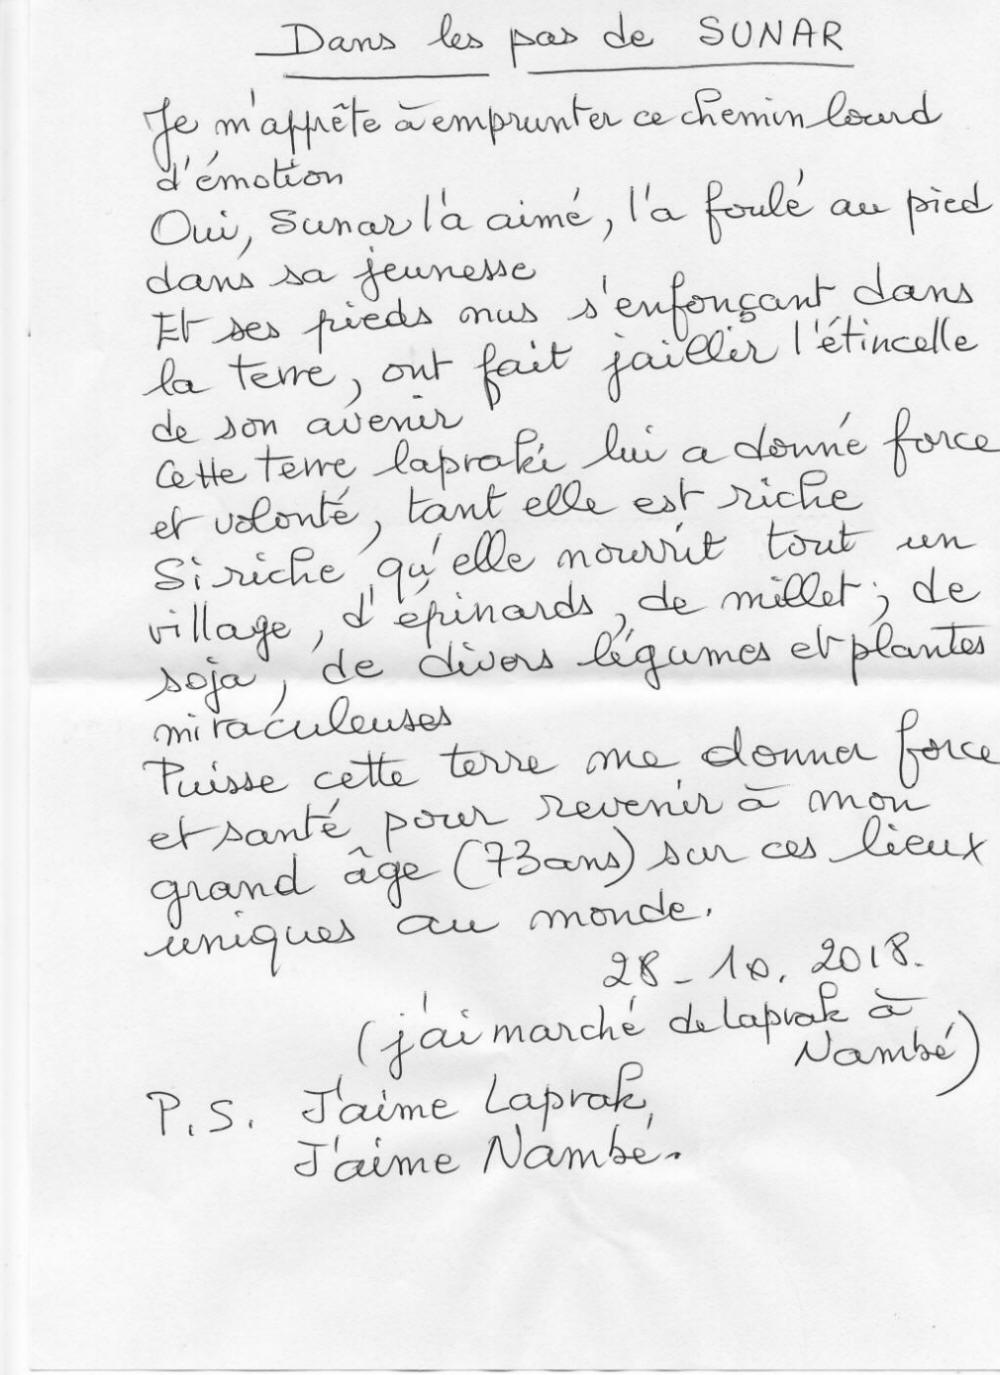 Dans les pas de SUNAR
Je m'apprête à emprunter ce chemin lourd
d'émotion
Oui, Sunar l'a aimé, l'a foulé au pied
dans sa jeunesse
Et ses pieds nus s'enfonçant dans
la terre, ont fait jaillir l'étincelle
de son avenir
Cette terre lapraki lui a donné force
et volonté, tant elle est riche
Si riche qu'elle nourrit tout un
village, d'épinards, de millet, de
soja, de divers légumes et plantes
miraculeuses
Puisse cette terre me donner force
et santé pour revenir à mon
grand âge (73 ans) sur ces lieux
uniques au monde.
28-10.2018.
(j'ai marché de Laprak à
Nambé)
P.S. J'aime Laprak,
J'aime Nambé.